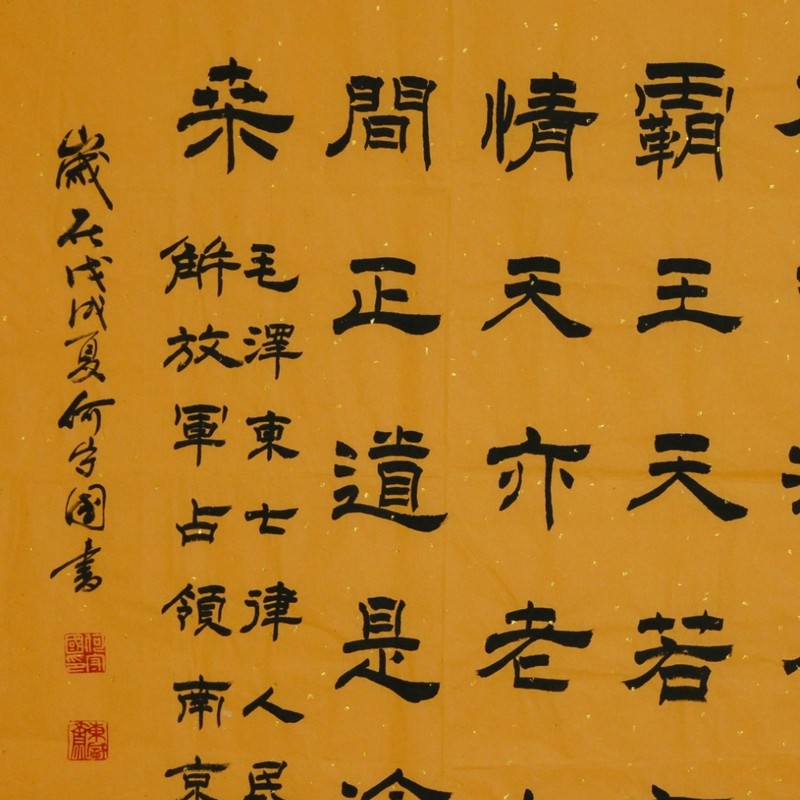 霸王天若
情天亦老
間正道是
桒
毛澤東七律人民
解放軍占領南京
歲在戊戌夏何守國書